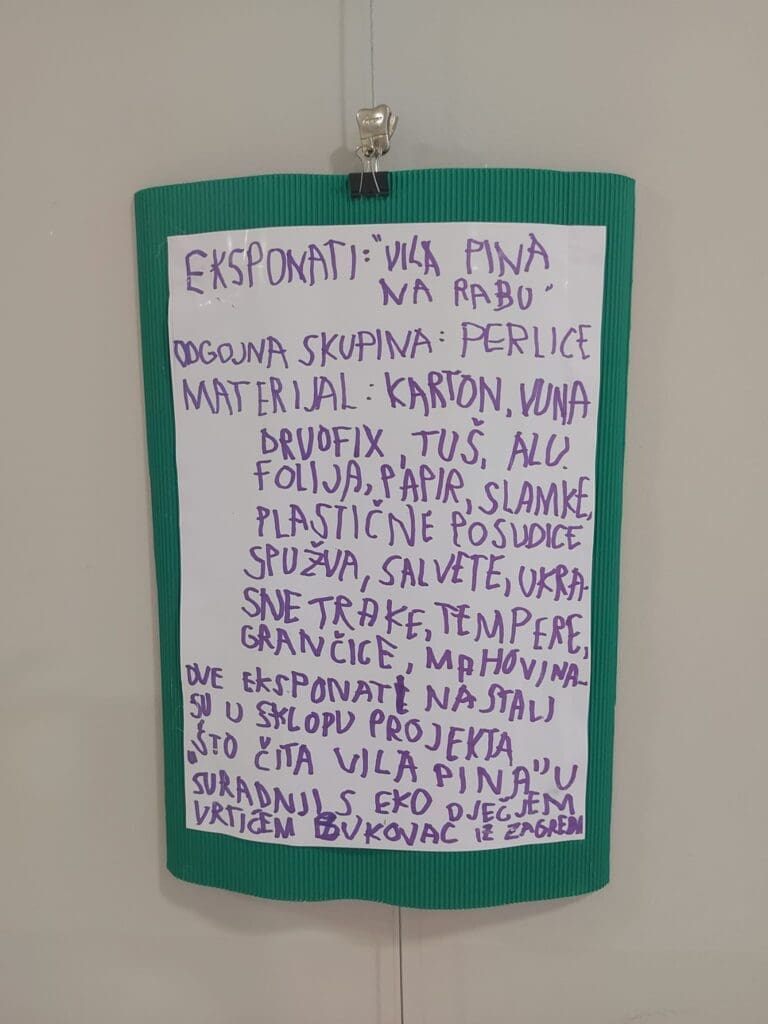 EKSPONATI: "VILA PINA
NA RABU"
ODGOJNA SKUPINA: PERLICE
MATERIJAL: KARTON, VUNA
DRVOFIX, TUŠ, ALU.
FOLIJA, PAPIR, SLAMKE,
PLASTIČNE POSUDICE
SPUŽVA, SALVETE, UKRA-
SNE TRAKE, TEMPERE,
GRANČICE, MAHOVINA
OVE EKSPONATI NASTALI
SU U SKLOPU PROJEKTA
"ŠTO ČITA VILA PINA" U
SURADNJI S EKO DJEČJEM
VRTIĆEM BUKOVAC IZ ZAGREBA